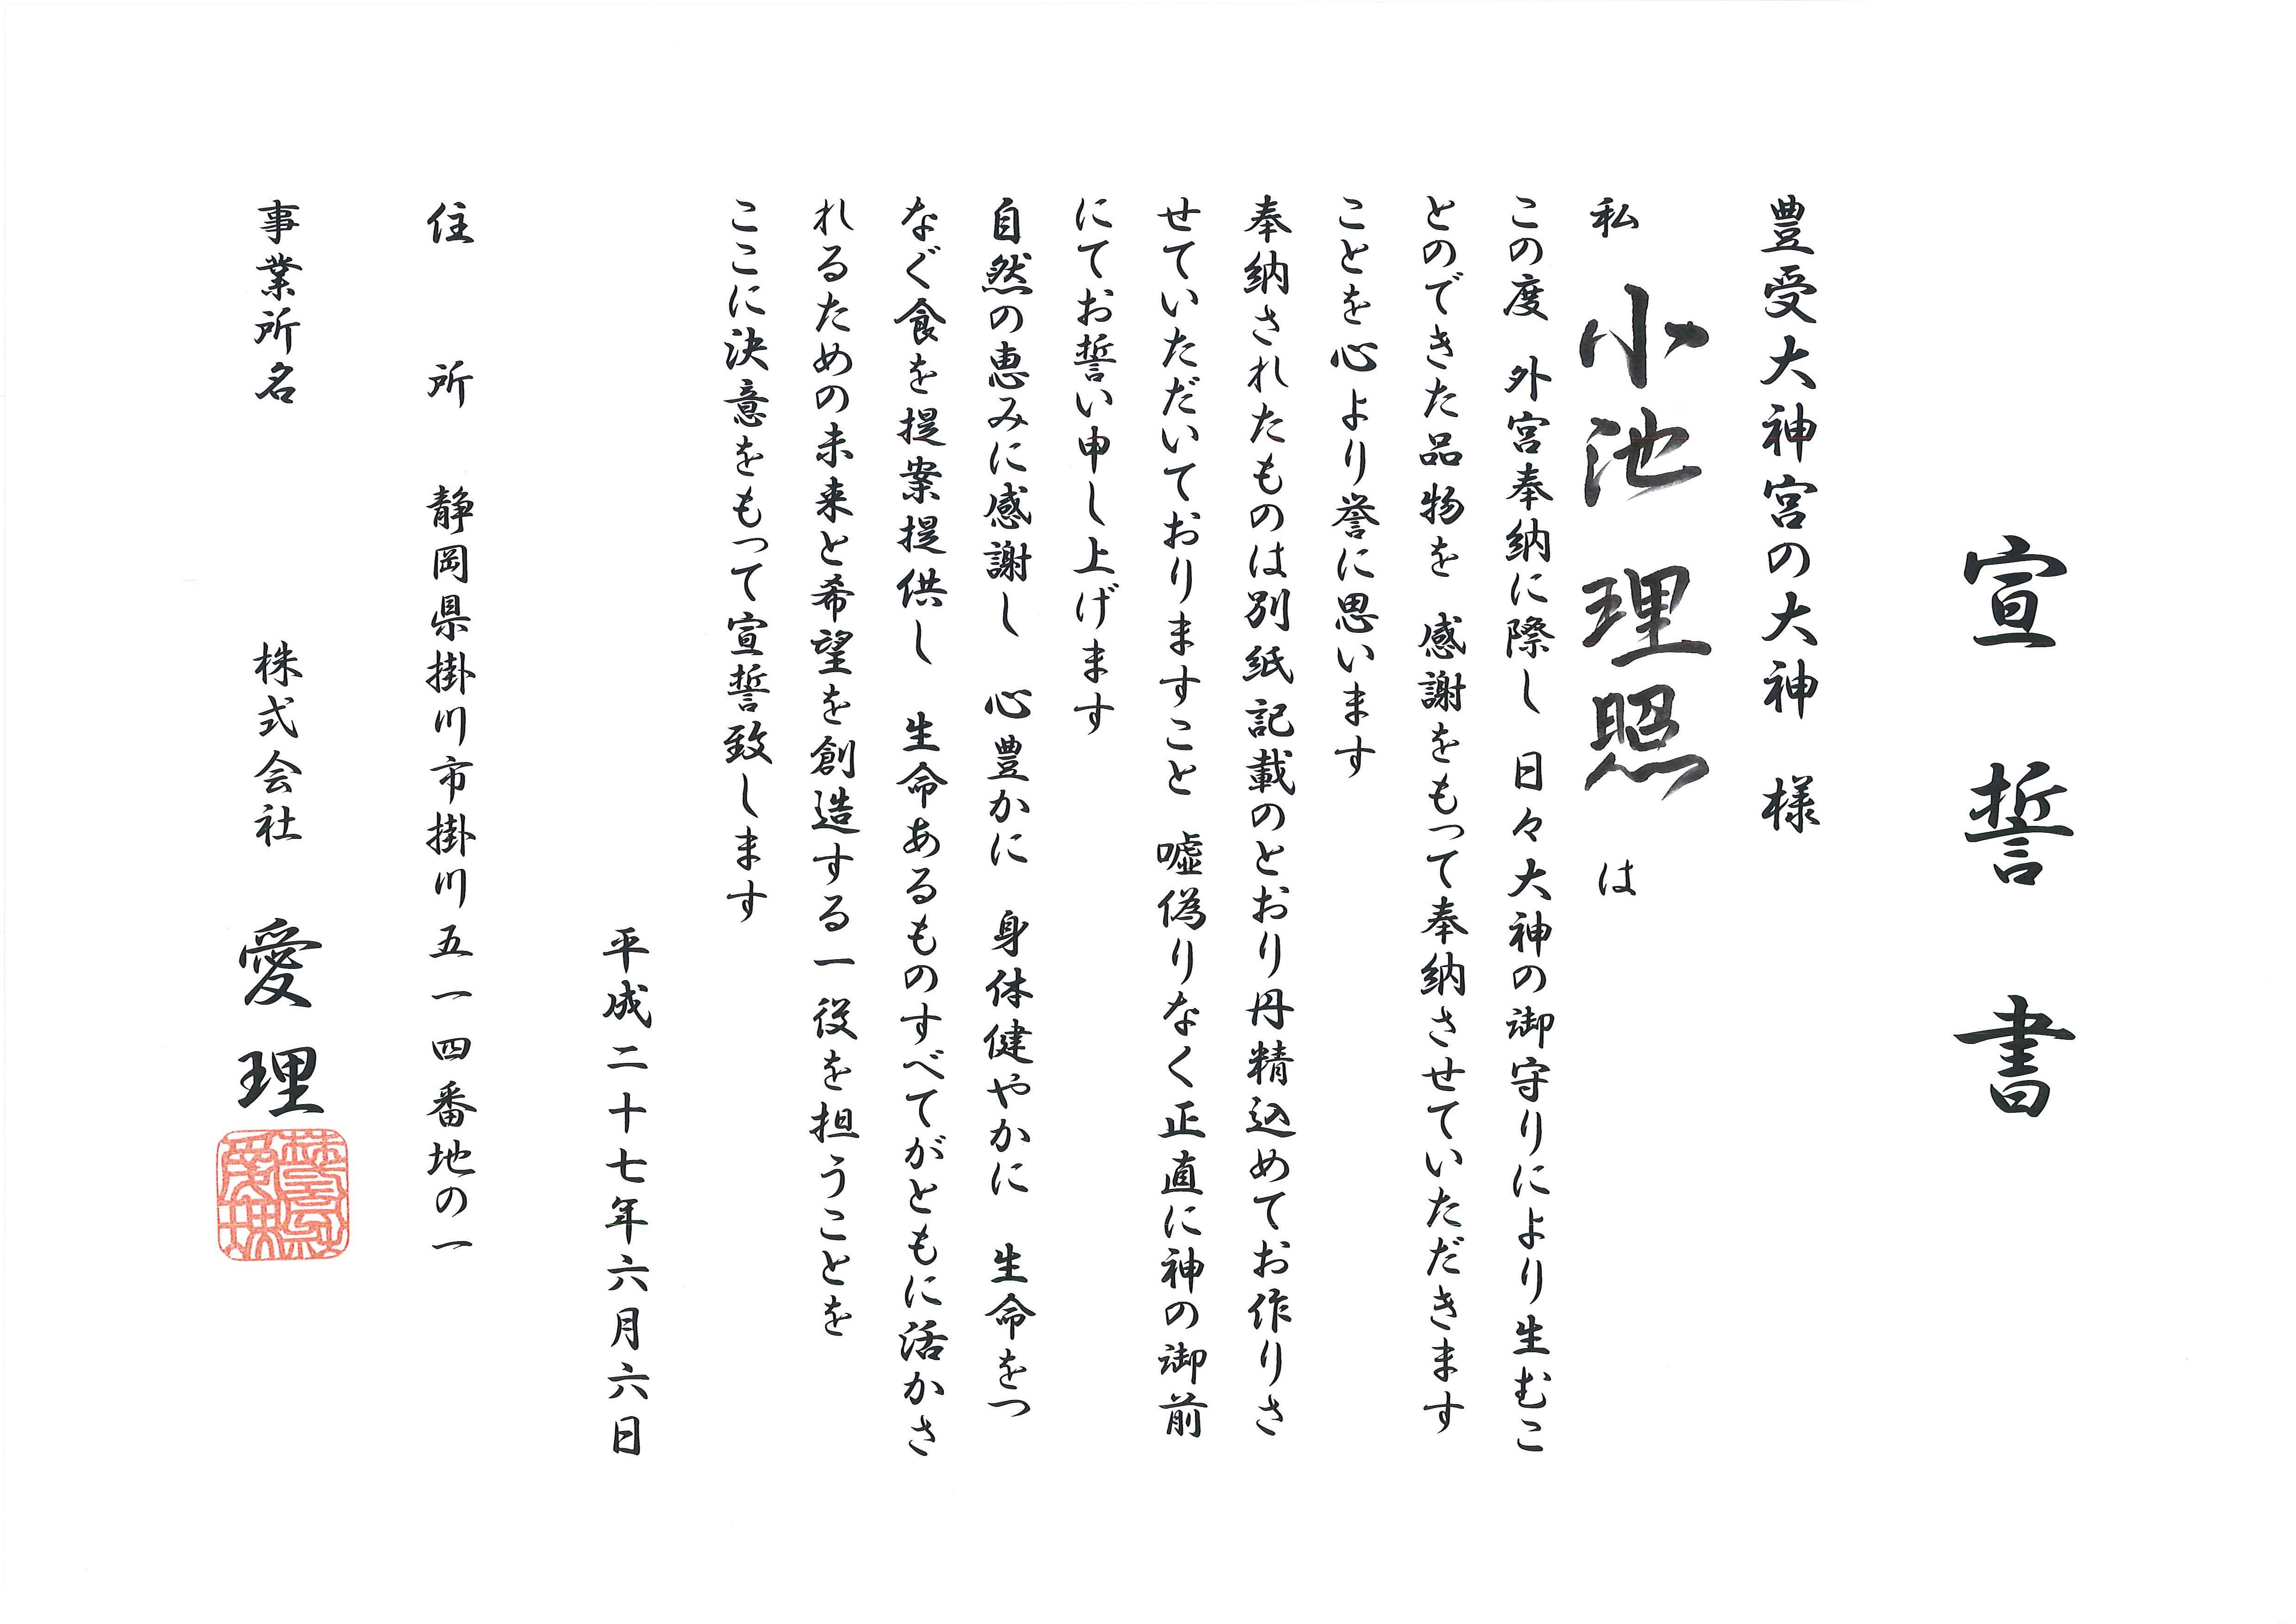 宣誓書
豊受大神宮の大神 様
私 小池 理照 は
この度 外宮奉納に際し 日々大神の御守りにより生むこ
とのできた品物を 感謝をもって奉納させていただきます
ことを心より誉に思います
奉納されたものは別紙記載のとおり丹精込めてお作りさ
せていただいておりますこと 嘘偽りなく正直に神の御前
にてお誓い申し上げます
自然の恵みに感謝し 心豊かに 身体健やかに 生命をつ
なぐ食を提案提供し 生命あるものすべてがともに活かさ
れるための未来と希望を創造する一役を担うことを
ここに決意をもって宣誓致します
平成二十七年六月六日
住所 静岡県掛川市掛川五一四番地の一
事業所名 株式会社 愛理